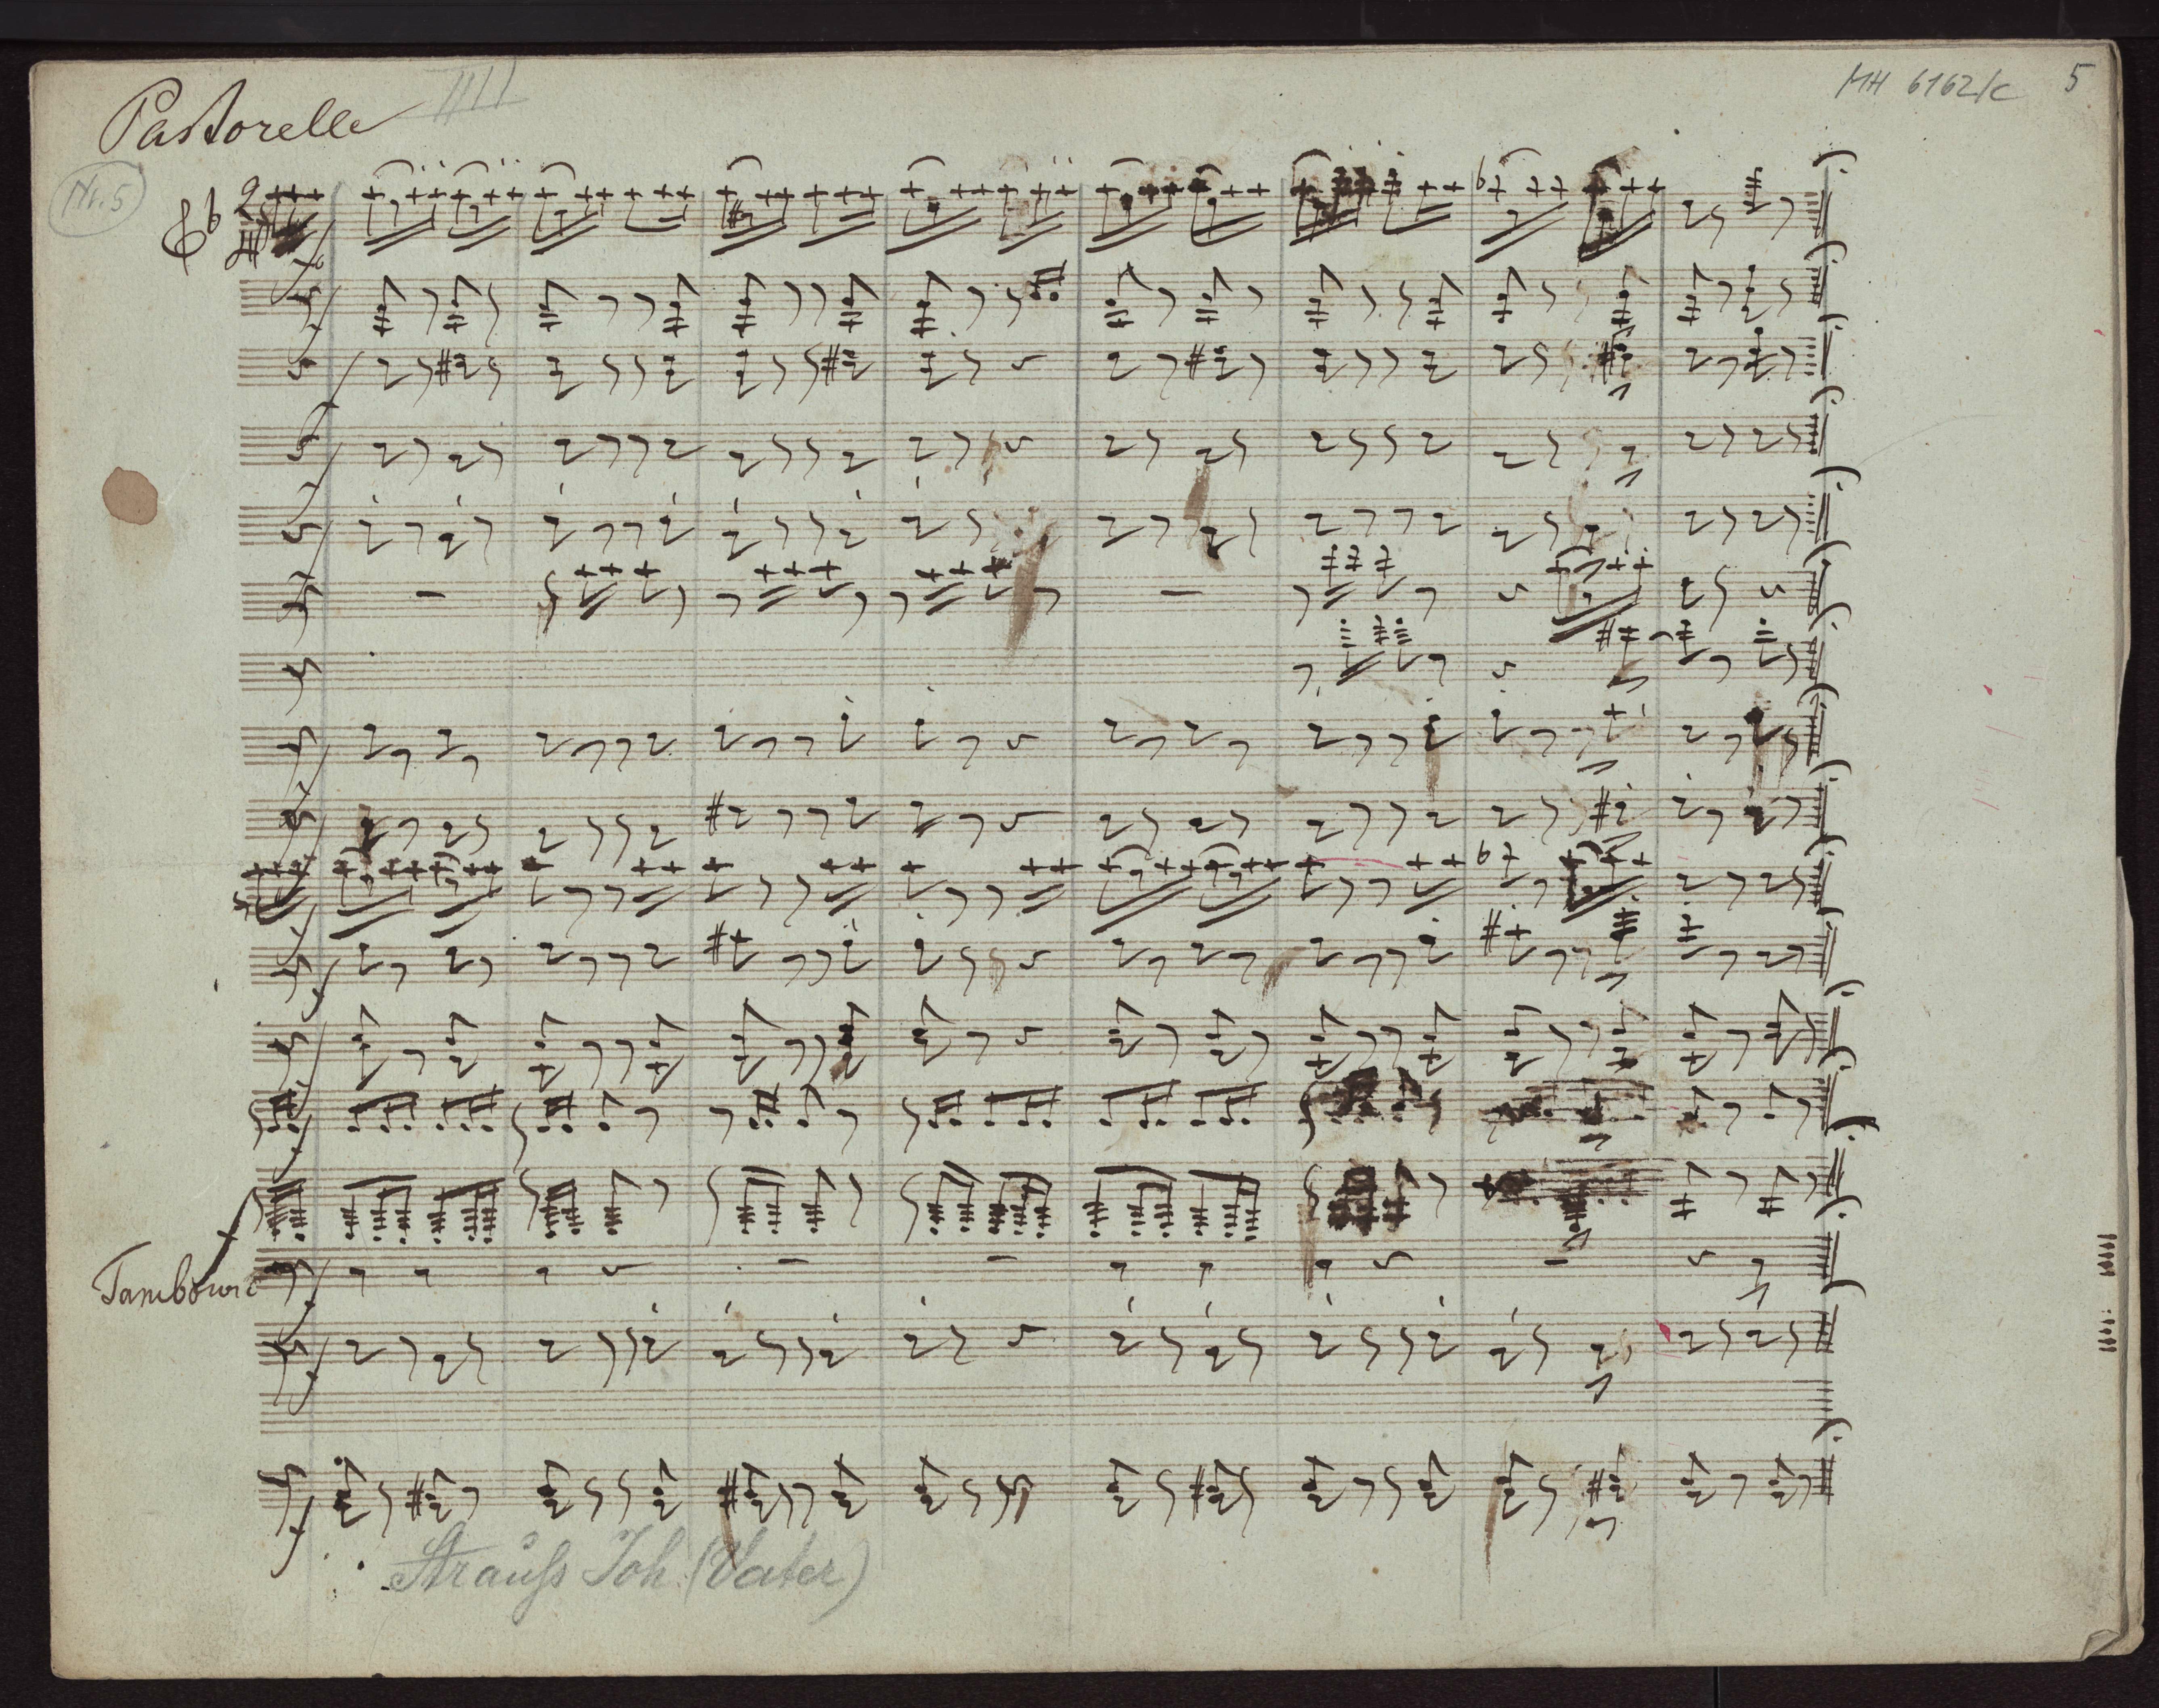 Pastorelle IIII
MH 6162/c 5
Nr. 5
2
4
Tambour
Strauſs Joh. (Vater)